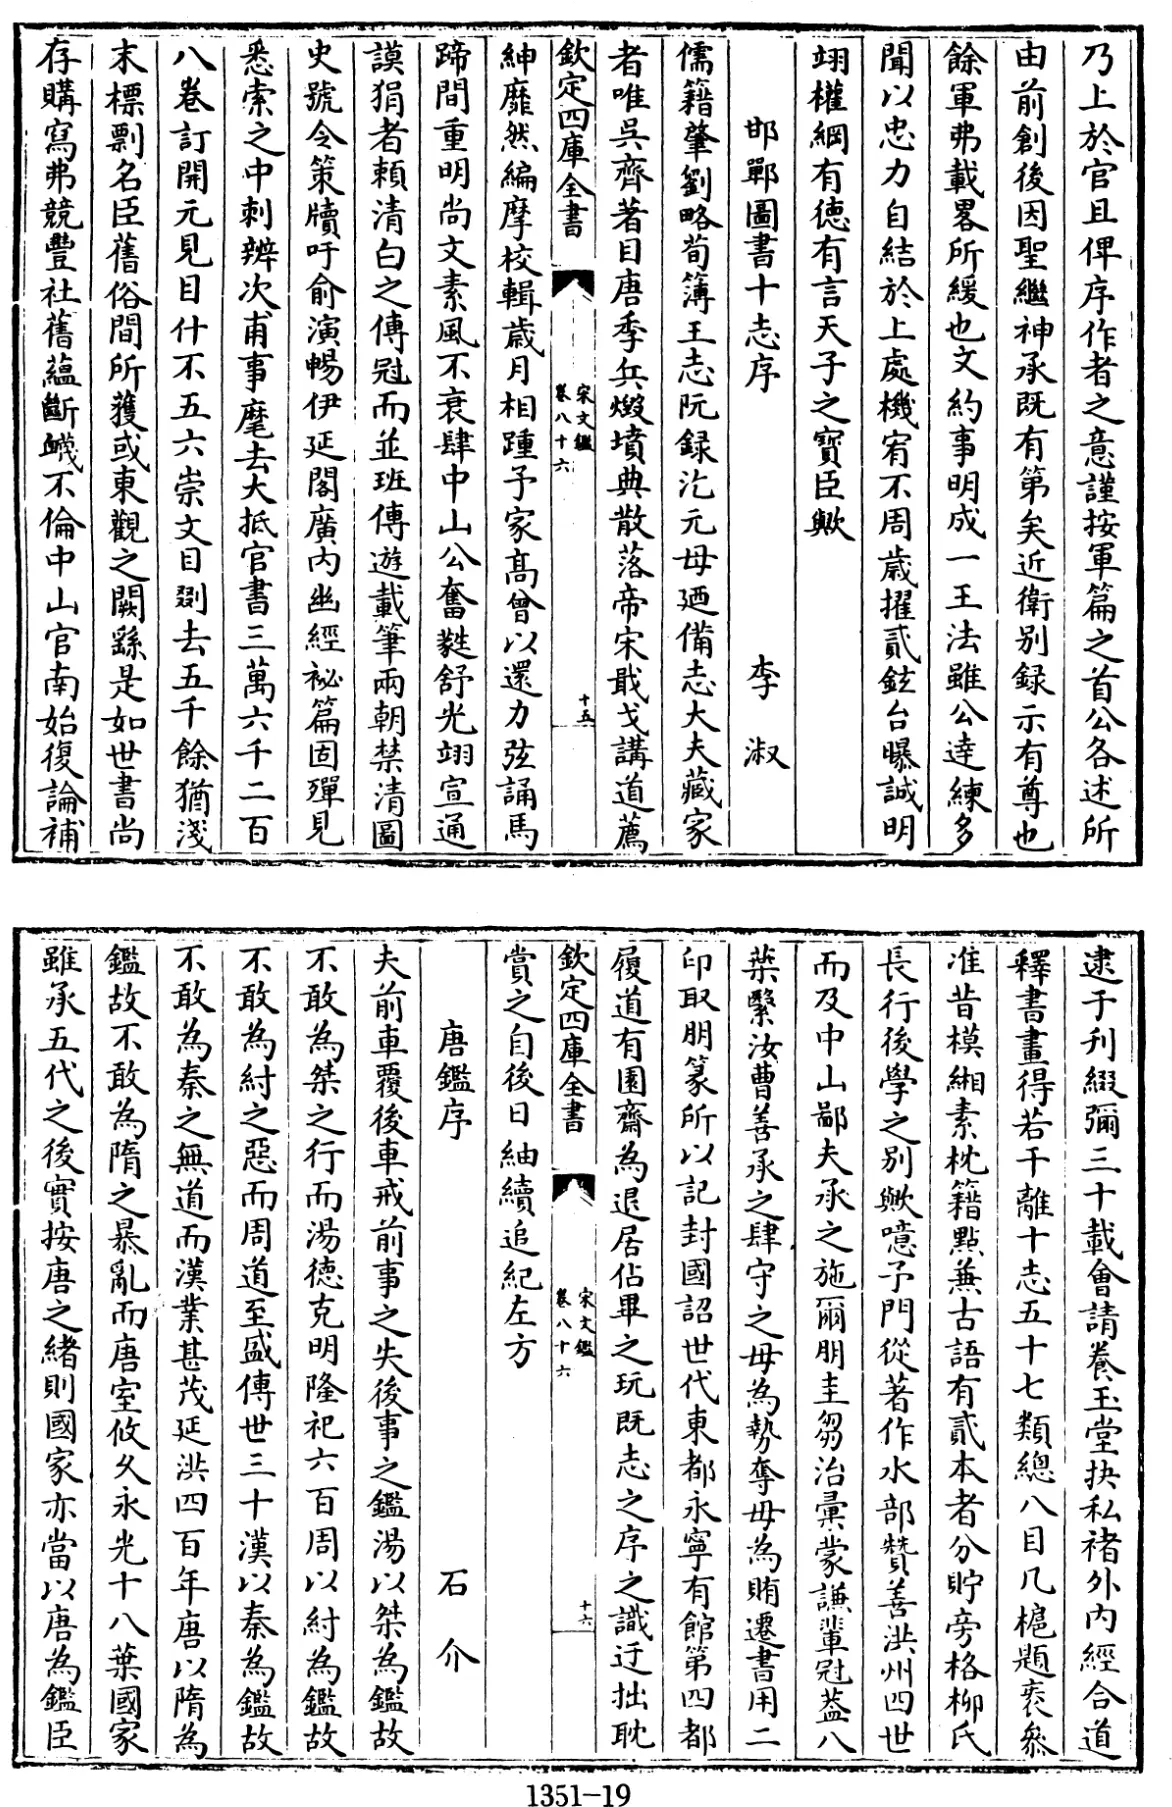 乃上於官且俾序作者之意謹按軍篇之首公各述所
由前創後因聖繼神承既有第矣近衛別録示有尊也
餘軍弗載畧所緩也文約事明成一王法雖公達練多
聞以忠力自結於上處機宥不周歲擢貳鉉台曝誠明
翊權綱有德有言天子之寶臣歟
邯鄲圖書十志序 李淑
儒籍肇劉略荀簿王志阮録汔元毋廼備志大夫藏家
者唯吳齊著目唐季兵燬墳典散落帝宋戢戈講道薦
欽定四庫全書 宋文鑑 卷八十六 十五
紳靡然編摩校輯歲月相踵予家高曾以還力弦誦馬
蹄間重明尚文素風不衰肆中山公奮甤舒光翊宣通
謨狷者頼清白之傳冠而並班傳遊載筆兩朝禁清圖
史號令策牘吁俞演暢伊延閣廣内幽經祕篇固殫見
悉索之中刺辨次甫事麾去大抵官書三萬六千二百
八卷訂開元見目什不五六崇文目剟去五千餘猶淺
末標剽名臣舊俗間所獲或東觀之闕繇是如世書尚
存購寫弗競豐社舊蘊斷蠛不倫中山官南始復論補
逮于刋綴彌三十載會請養玉堂抉私褚外内經合道
釋書畫得若干離十志五十七類總八目几槴題袠叅
准昔模緗素枕籍㸃兼古語有貳本者分貯旁格柳氏
長行後學之別歟噫予門從著作水部贊善洪州四世
而及中山鄙夫承之施爾朋圭芻治彚蒙謙輩冠葢八
葉繄汝曹善承之肆守之毋為勢奪毋為賄遷書用二
印取朋篆所以記封國詔世代東都永寧有館第四都
履道有園齋為退居佔畢之玩既志之序之識迂拙耽
欽定四庫全書 宋文鑑 卷八十六 十六
賞之自後日紬續追紀左方
唐鑑序 石介
夫前車覆後車戒前事之失後事之鑑湯以桀為鑑故
不敢為桀之行而湯德克明隆祀六百周以紂為鑑故
不敢為紂之惡而周道至盛傳世三十漢以秦為鑑故
不敢為秦之無道而漢業甚茂延洪四百年唐以隋為
鑑故不敢為隋之暴亂而唐室攸久永光十八葉國家
雖承五代之後實按唐之緒則國家亦當以唐為鑑臣
1351-19